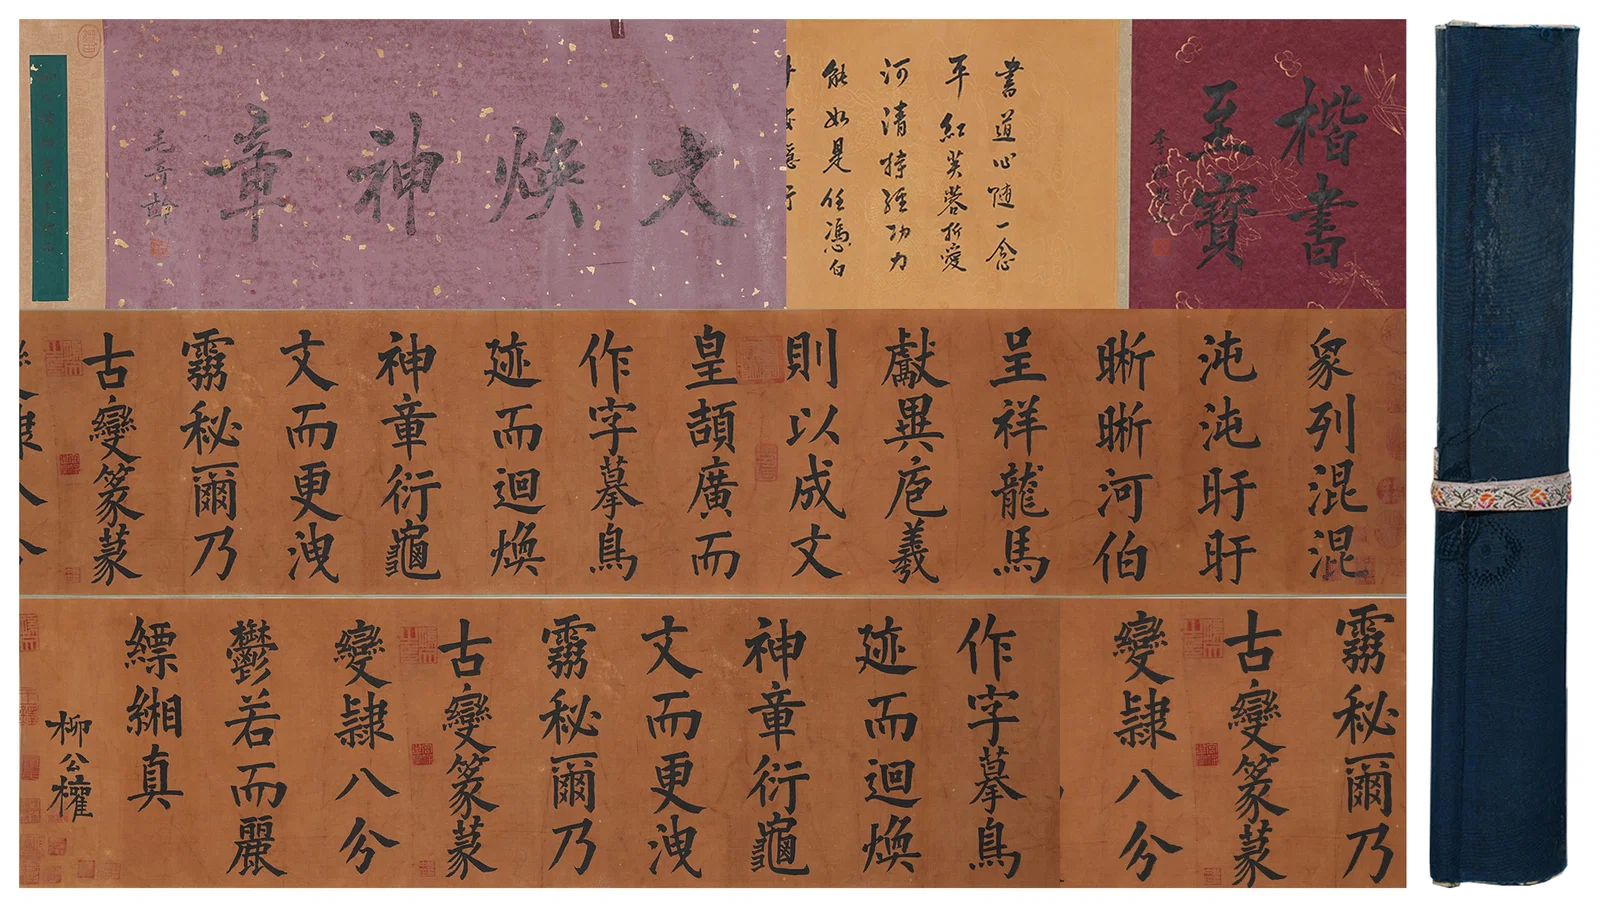 楷書
至寶
書道心隨一念
平紅芙蓉折愛
河清持經功力
能如是任憑白
文煥神章
毛奇齡
象列混混
沌沌盱盱
晰晰河伯
呈祥龍馬
獻異庖羲
則以成文
皇頡廣而
作字摹鳥
迹而迴煥
神章衍龜
文而更洩
霧秘爾乃
古變篆篆
霧秘爾乃
古變篆篆
變隷八分
作字摹鳥
迹而迴煥
神章衍龜
文而更洩
霧秘爾乃
古變篆篆
變隷八分
鬱若而麗
縹緗真
柳公權